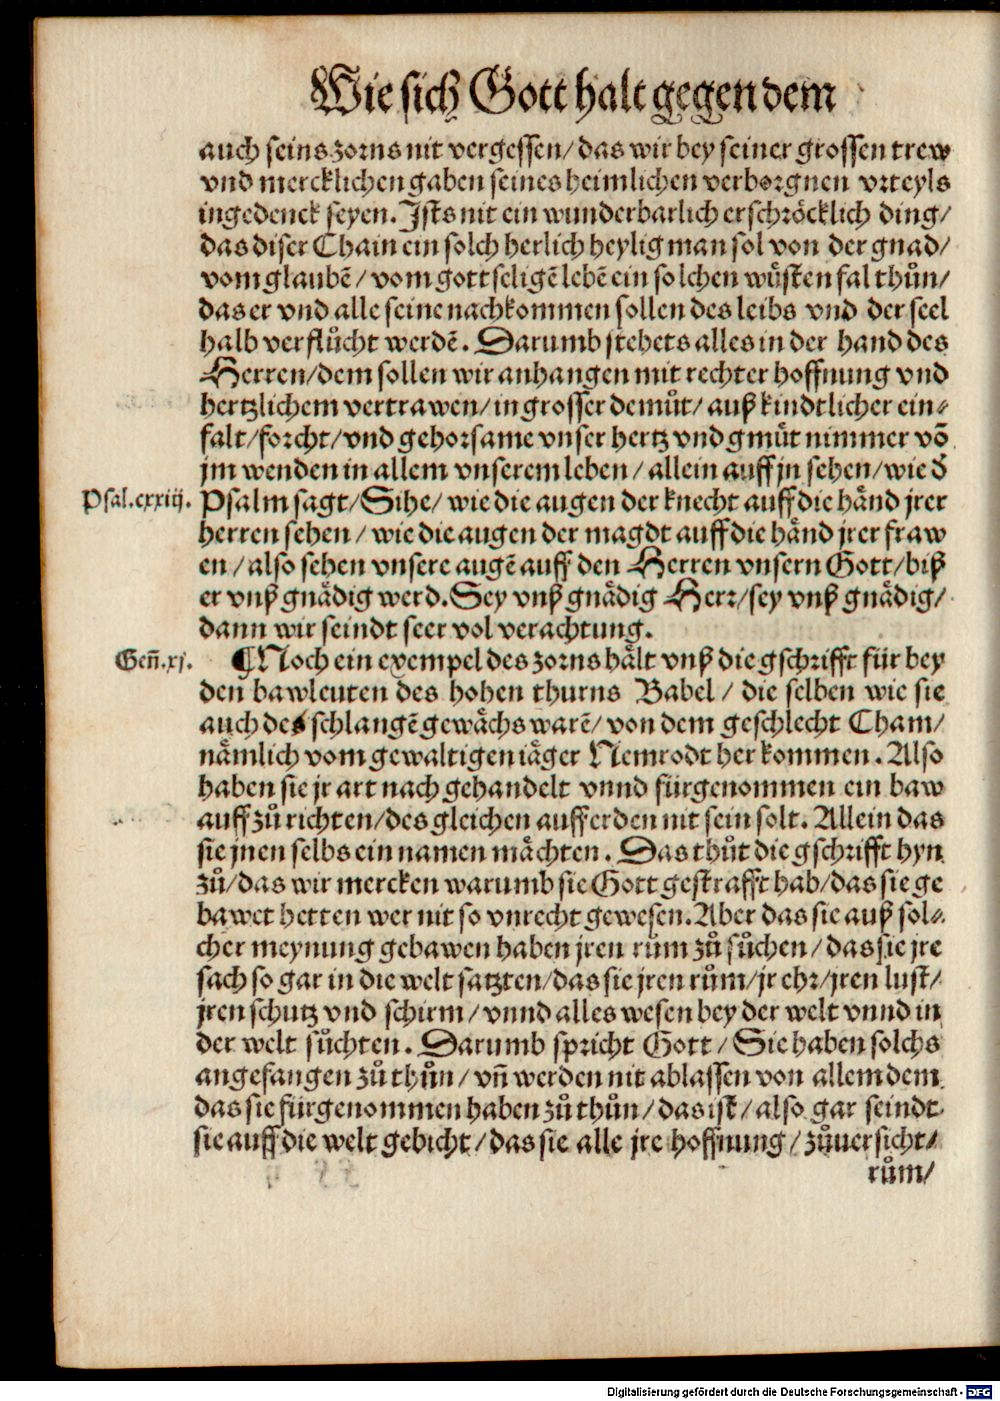 Wie sich Gott halt gegen dem
auch seins zorns nit vergessen/ das wir bey seiner grossen trew
vnd mercklichen gaben seines heimlichen verborgnen vrteyls
ingedenck seyen. Ists nit ein wunderbarlich erschröcklich ding/
das diser Chain ein solch herlich heylig man sol von der gnad/
vom glaubē/ vom gottseligē lebē ein solchen wuͤsten fal thuͦn/
das er vnd alle seine nachkommen sollen des leibs vnd der seel
halb verfluͦcht werdē. Darumb stehets alles in der hand des
Herren/ dem sollen wir anhangen mit rechter hoffnung vnd
hertzlichem vertrawen/ in grosser demuͤt/ auß kindtlicher ein⸗
falt/ forcht/ vnd gehorsame vnser hertz vnd gmuͤt nimmer võ
jm wenden in allem vnserem leben/ allein auff jn sehen/ wie ď
Psal.cxxiij. Psalm sagt/ Sihe/ wie die augen der knecht auff die haͤnd jrer
herren sehen/ wie die augen der magdt auff die haͤnd jrer fraw
en/ also sehen vnsere augē auff den Herren vnsern Gott/ biß
er vnß gnaͤdig werd. Sey vnß gnaͤdig Herr/ sey vnß gnaͤdig/
dann wir seindt seer vol verachtung.
Geñ.xj. ¶ Noch ein exempel des zorns haͤlt vnß die gschrifft für bey
den bawleuten des hohen thurns Babel/ die selben wie sie
auch des schlangē gewaͤchs warē/ von dem geschlecht Cham/
naͤmlich vom gewaltigen iaͤger Nemrodt her kommen. Also
haben sie jr art nach gehandelt vnnd fürgenommen ein baw
auff zuͦ richten/ des gleichen auff erden nit sein solt. Allein das
sie jnen selbs ein namen maͤchten. Das thuͦt die gschrifft hyn
zuͦ/ das wir mercken warumb sie Gott gestrafft hab/ das sie ge
bawet hetten wer nit so vnrecht gewesen. Aber das sie auß sol⸗
cher meynung gebawen haben jren ruͦm zuͦ suͦchen/ das sie jre
sach so gar in die welt satzten/ das sie jren ruͦm/ jr ehr/ jren lust/
jren schutz vnd schirm/ vnnd alles wesen bey der welt vnnd in
der welt suͦchten. Darumb spricht Gott/ Sie haben solchs
angefangen zuͦ thuͦn/ vñ werden nit ablassen von allem dem
das sie fürgenommen haben zuͦ thuͦn/ das ist/ also gar seindt
sie auff die welt gebicht/ das sie alle jre hoffnung/ zuͦuersicht/
ruͦm/
Digitalisierung gefördert durch die Deutsche Forschungsgemeinschaft - DFG